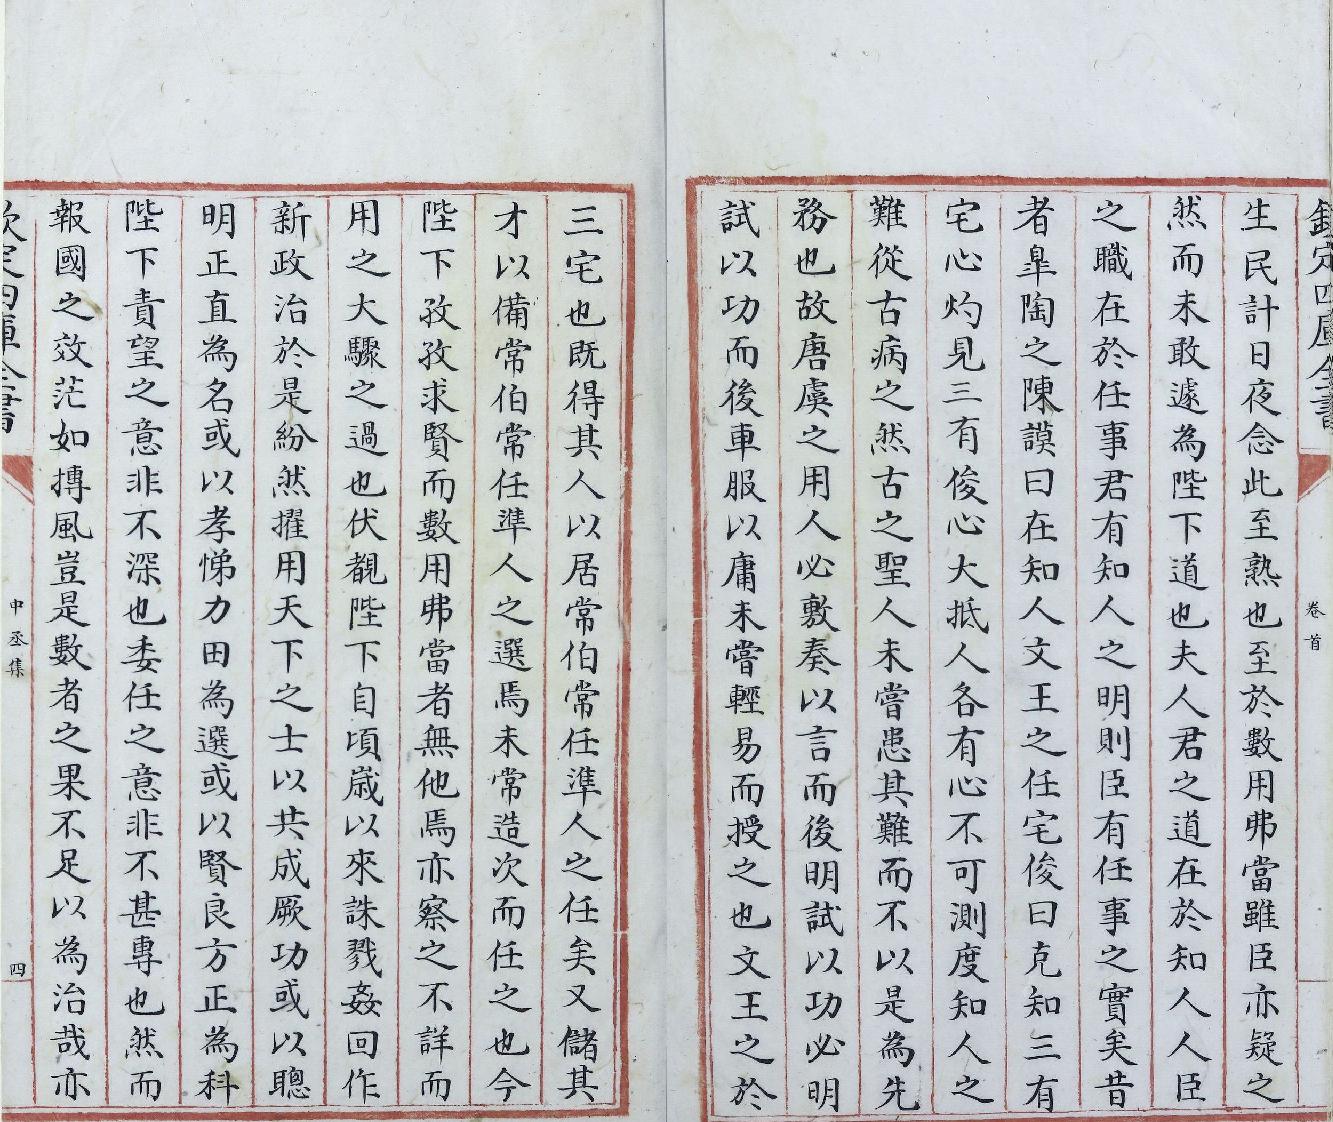 欽定四庫全書
卷首
生民計日夜念此至熟也至於數用弗當雖臣亦疑之
然而未敢遽為陛下道也夫人君之道在於知人人臣
之職在於任事君有知人之明則臣有任事之實矣昔
者臯陶之陳謨曰在知人文王之任宅俊曰克知三有
宅心灼見三有俊心大抵人各有心不可測度知人之
難從古病之然古之聖人未嘗患其難而不以是為先
務也故唐虞之用人必敷奏以言而後明試以功必明
試以功而後車服以庸未嘗輕易而授之也文王之於
三宅也既得其人以居常伯常任準人之任矣又儲其
才以備常伯常任準人之選焉未常造次而任之也今
陛下孜孜求賢而數用弗當者無他焉亦察之不詳而
用之大驟之過也伏覩陛下自頃歲以來誅戮姦回作
新政治於是紛然擢用天下之士以共成厥功或以聰
明正直為名或以孝悌力田為選或以賢良方正為科
陛下責望之意非不深也委任之意非不甚專也然而
報國之效茫如摶風豈是數者之果不足以為治哉亦
欽定四庫全書
中丞集
四